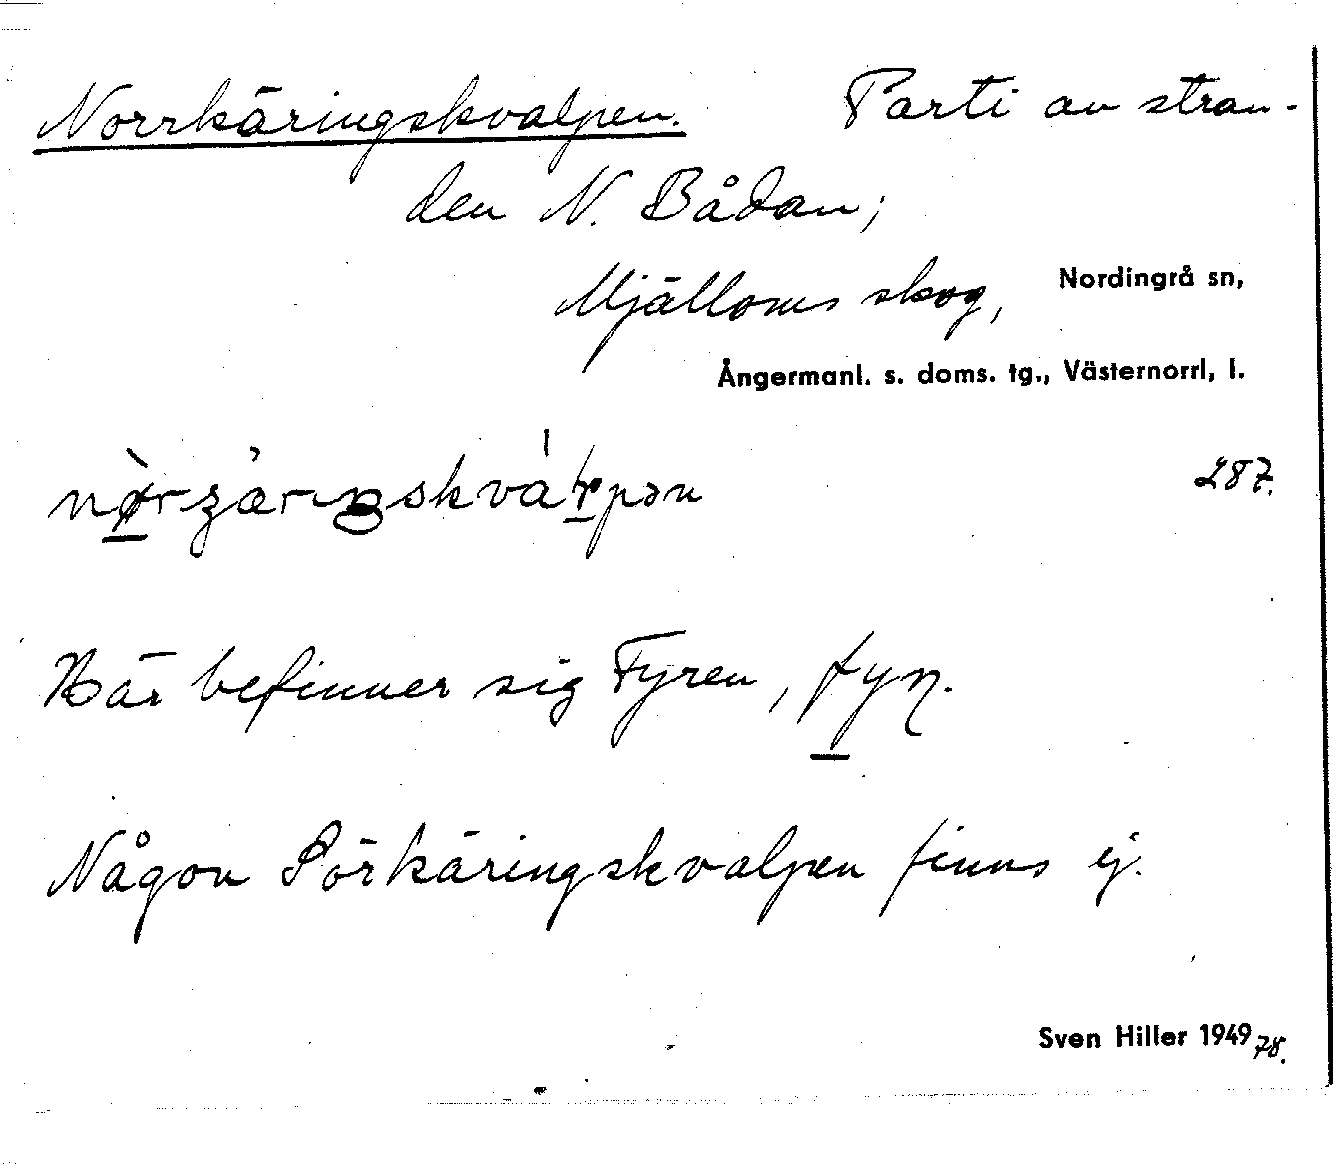 Norrkäringskvalpen. Parti av stran-
den N. Bådan;
Mjälloms skog, Nordingrå sn,
Ångermanl. s. doms. tg., Västernorrl, l.
287.
Här befinner sig Fyren,
Någon Sörkäringskvalpen finns ej.
Sven Hiller 1949 78.